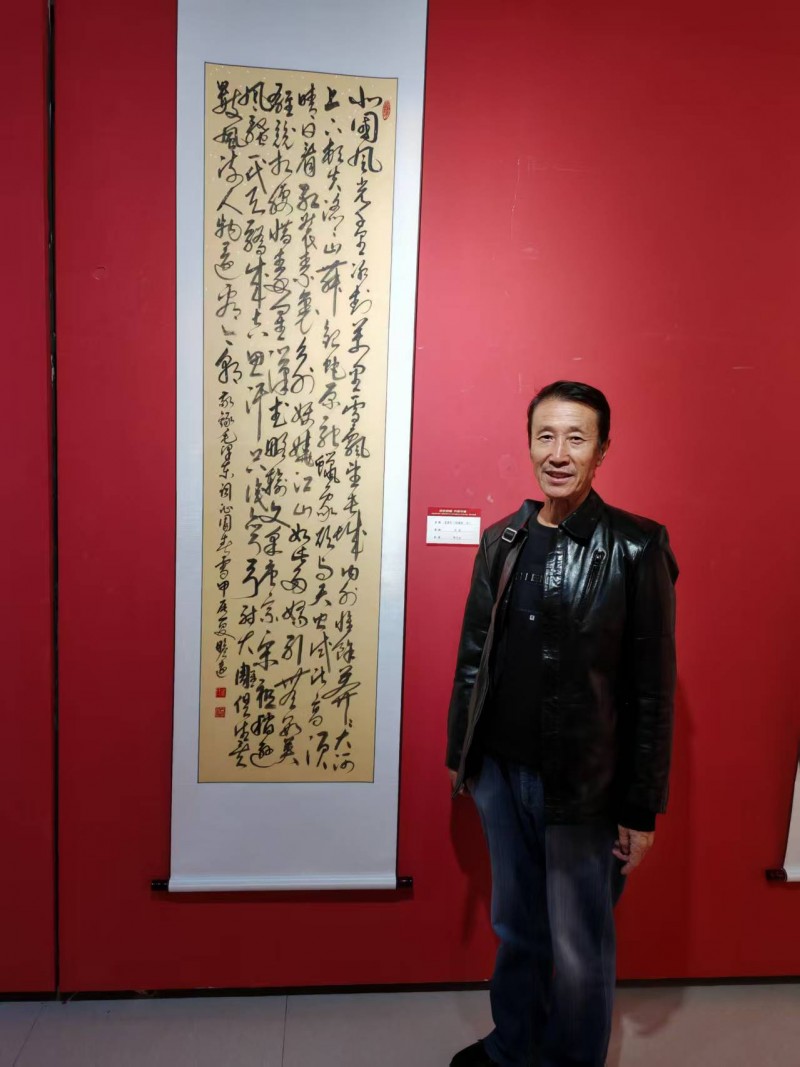 北國风光千里冰封万里雪飘望长城内外惟馀莽々大河
上下顿失滔々山舞银蛇原驰蜡象欲与天公试比高须
晴日看红装素裹分外妖娆江山如此多娇引无数英
雄竞折腰惜秦皇汉武略输文采唐宗宋祖稍逊
风骚一代天骄成吉思汗只识弯弓射大雕俱往矣
数风流人物还看今朝 敬录毛泽东词沁园春雪甲辰夏